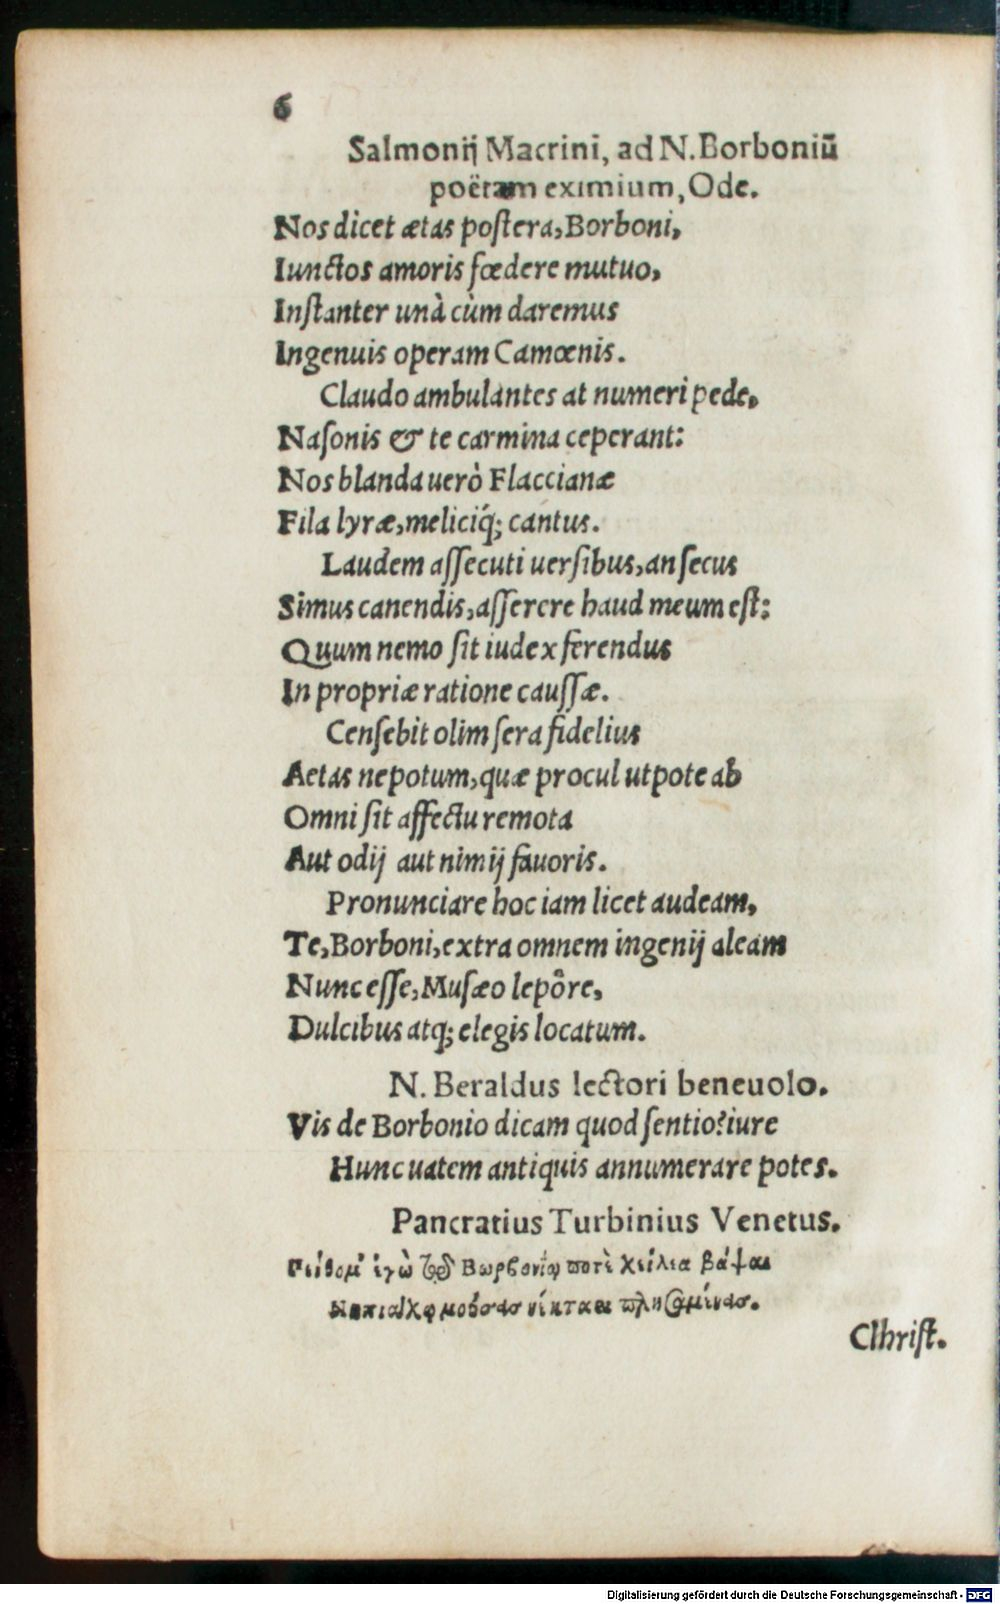 6
Salmonij Macrini, ad N. Borboniū
poëtam eximium, Ode.
Nos dicet ætas postera, Borboni,
Iunctos amoris fœdere mutuo,
Instanter unà cùm daremus
Ingenuis operam Camœnis.
Claudo ambulantes at numeri pede,
Nasonis & te carmina ceperant:
Nos blanda uerò Flaccianæ
Fila lyræ, meliciq́; cantus.
Laudem assecuti uersibus, an secus
Simus canendis, asserere haud meum est:
Quum nemo sit iudex ferendus
In propriæ ratione caussæ.
Censebit olim sera fidelius
Aetas nepotum, quæ procul utpote ab
Omni sit affectu remota
Aut odij aut nimij fauoris.
Pronunciare hoc iam licet audeam,
Te, Borboni, extra omnem ingenij aleam
Nunc esse, Musæo lepôre,
Dulcibus atq; elegis locatum.
N. Beraldus lectori beneuolo.
Vis de Borbonio dicam quod sentio? iure
Hunc uatem antiquis annumerare potes.
Pancratius Turbinius Venetus.
Πείθομ' ἐγὼ Βωρβονίῳ ποτὲ χείλεα βάψαι
μούσας νέκταρι πλησαμένας.
Clhrist.
Digitalisierung gefördert durch die Deutsche Forschungsgemeinschaft - DFG